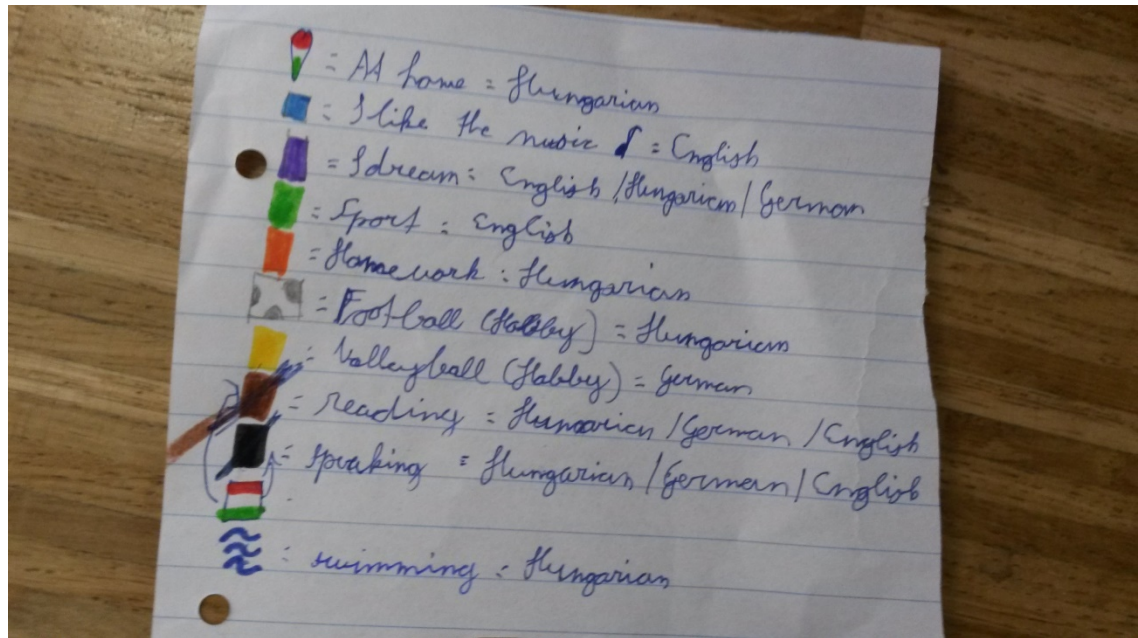 = At home = Hungarian
= I like the music = English
= I dream = English / Hungarian / German
= Sport = English
= Homework : Hungarian
= Football (Hobby) = Hungarian
= Volleyball (Hobby) = German
= reading = Hungarian / German / English
= speaking = Hungarian / German / English
= swimming = Hungarian